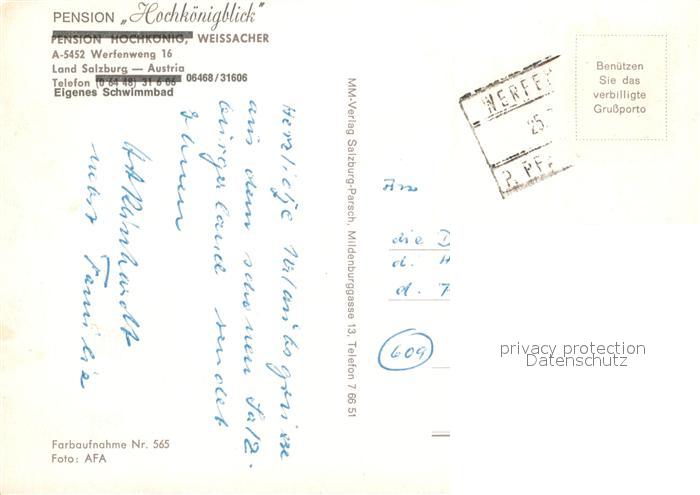 PENSION „Hochkönigblick"
PENSION HOCHKÖNIG, WEISSACHER
A-5452 Werfenweng 16
Land Salzburg — Austria
Telefon (0 64 48) 31 6 06 06468/31606
Eigenes Schwimmbad
Herzliche Urlaubsgrüsse
aus dem schönen Salz-
burgerland sendet
Ihnen
Reinhardt
nebst Familie
Farbaufnahme Nr. 565
Foto: AFA
MM-Verlag Salzburg-Parsch, Mildenburggasse 13, Telefon 7 66 51
WERFEN
25.
P. PF
Benützen
Sie das
verbilligte
Grußporto
An
die D
d. H
d. F
609
privacy protection
Datenschutz